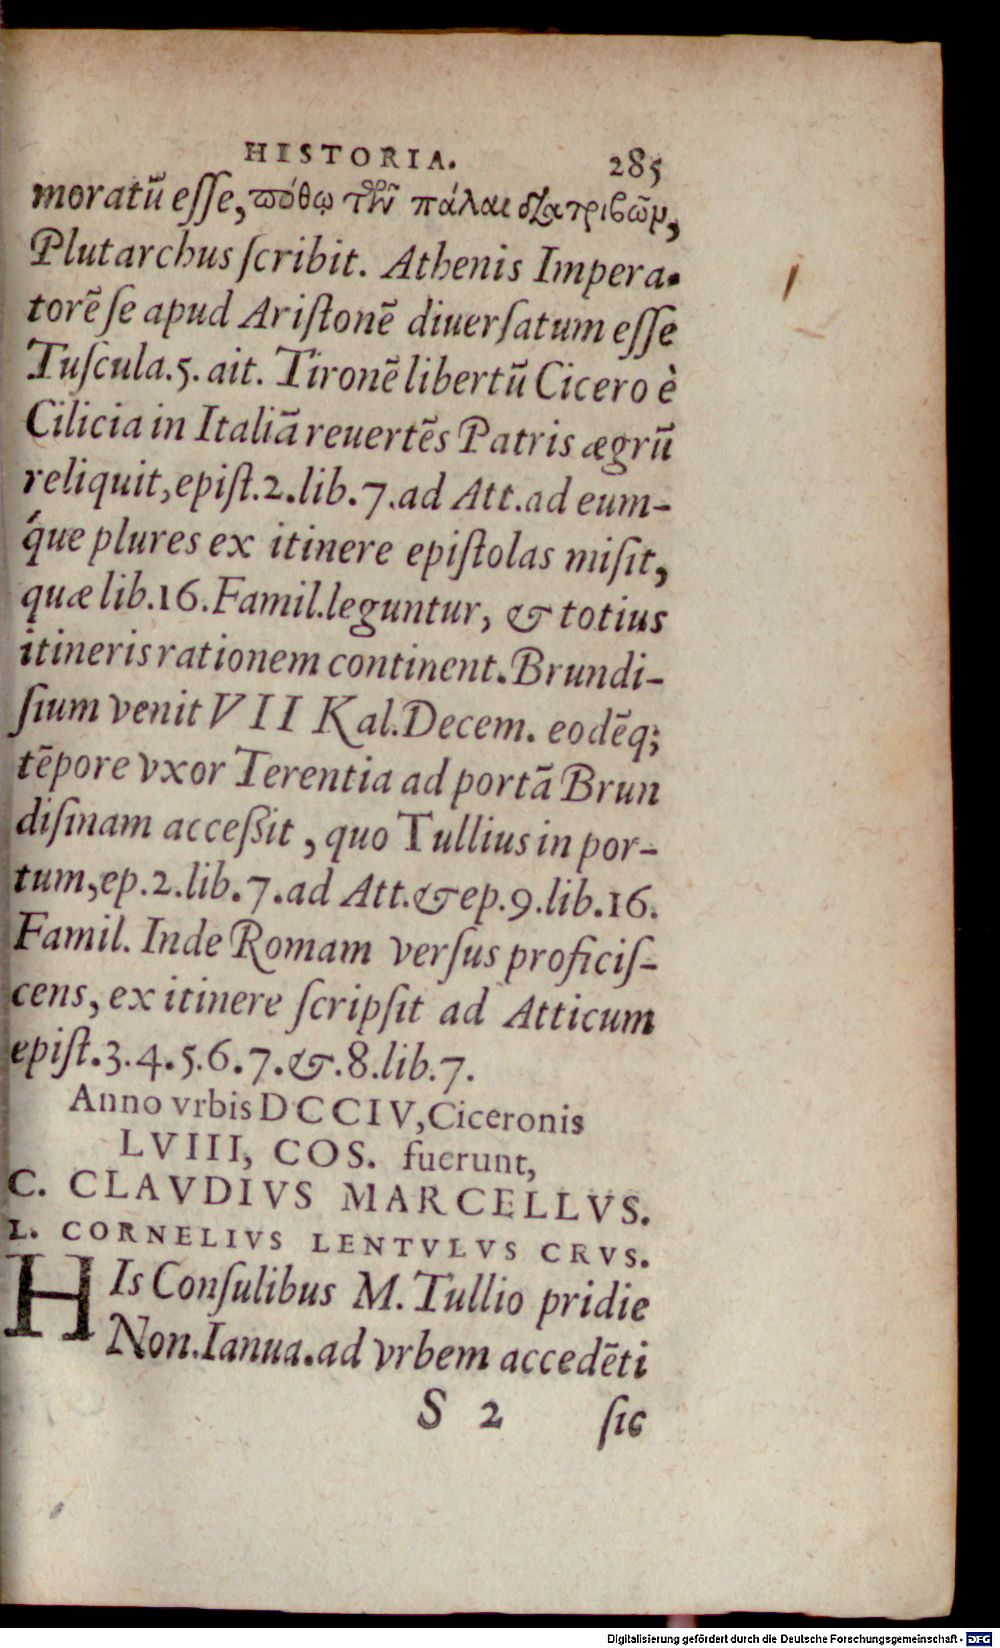 HISTORIA. 285
moratū eſſe, πόθῳ τῶν πάλαι διατριβῶν,
Plutarchus ſcribit. Athenis Impera-
torē ſe apud Ariſtonē diuerſatum eſſe
Tuſcula.5. ait. Tironē libertū Cicero è
Cilicia in Italiā reuertēs Patris ægrū
reliquit, epiſt.2.lib.7.ad Att.ad eum-
q́ue plures ex itinere epiſtolas miſit,
quæ lib.16.Famil.leguntur, & totius
itineris rationem continent. Brundi-
ſium venit VII Kal.Decem. eodēq;
tēpore vxor Terentia ad portā Brun
diſinam acceßit, quo Tullius in por-
tum, ep.2.lib.7.ad Att.& ep.9.lib.16.
Famil. Inde Romam verſus proficiſ-
cens, ex itinere ſcripſit ad Atticum
epiſt.3.4.5.6.7.&.8.lib.7.
Anno vrbis DCCIV, Ciceronis
LVIII, COS. fuerunt,
C. CLAVDIVS MARCELLVS.
L. CORNELIVS LENTVLVS CRVS.
HIs Conſulibus M. Tullio pridie
Non.Ianua.ad vrbem accedēti
S 2 ſic
Digitalisierung gefördert durch die Deutsche Forschungsgemeinschaft - DFG